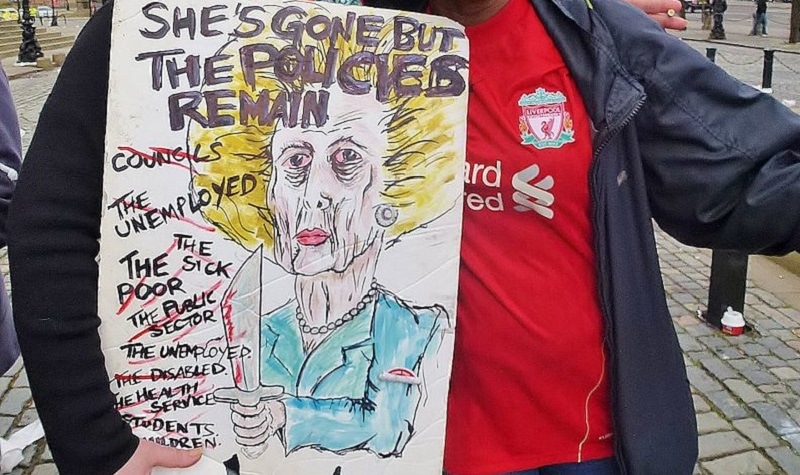 SHE'S GONE BUT
THE POLICIES
REMAIN
COUNCILS
THE
UNEMPLOYED
THE
SICK
THE
POOR
THE PUBLIC
SECTOR
THE UNEMPLOYED
THE DISABLED.
HE HEALTH
SERVICE
STUDENTS
ILDREN.
LIVERPOOL
ard
red